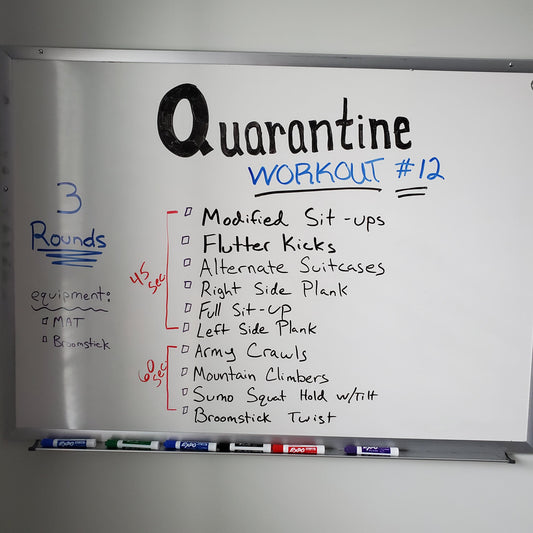 Quarantine
WORKOUT #12
3
Rounds
equipment:
MAT
Broomstick
45 sec
Modified Sit-ups
Flutter Kicks
Alternate Suitcases
Right Side Plank
Full Sit-up
Left Side Plank
60 sec
Army Crawls
Mountain Climbers
Sumo Squat Hold w/Tilt
Broomstick Twist
EXPO
EXPO
EXPO
EXPO